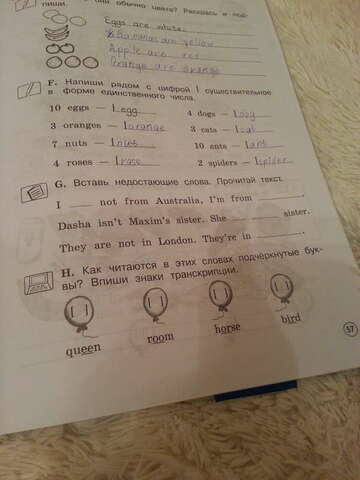 они обычно цвета? Раскрась и под-
пиши.
Eggs are white.
Bananas are yellow
Apple are red
Orange are orange
F. Напиши рядом с цифрой 1 существительное
в форме единственного числа.
10 eggs — 1 egg
4 dogs — 1 dog
3 oranges — 1 orange
3 cats — 1 cat
7 nuts — 1 nut
10 ants — 1 ant
4 roses — 1 rose
2 spiders — 1 spider
G. Вставь недостающие слова. Прочитай текст.
I ____ not from Australia, I'm from ________.
Dasha isn't Maxim's sister. She ________ sister.
They are not in London. They're in ________.
H. Как читаются в этих словах подчёркнутые бук-
вы? Впиши знаки транскрипции.
[ ] [ ] [ ] [ ]
queen room horse bird
57